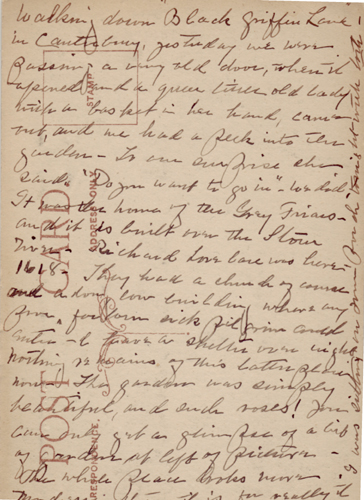 Walking down "Black Griffin Lane"
in Canterbury, yesterday we were
passing a very old door, when it
opened and a queer little old lady
with a basket in her hand, came
out, and we had a peek into the
garden - To our surprise she
said "Do you want to go in" - we did!
It was the home of the Grey Friars -
and it is built over the Stour
River - Richard Lovelace was here -
1618 - They had a church of course
and a long low building where any
poor, forlorn sick pilgrim could
enter - & have a shelter over night
nothing remains of this latter place
now - The garden was simply
beautiful, and such roses! You
can only get a glimpse of a bit
of garden at left of picture -
The whole place looks more
POST CARD
CORRESPONDENCE.
ADDRESS ONLY.
STAMP